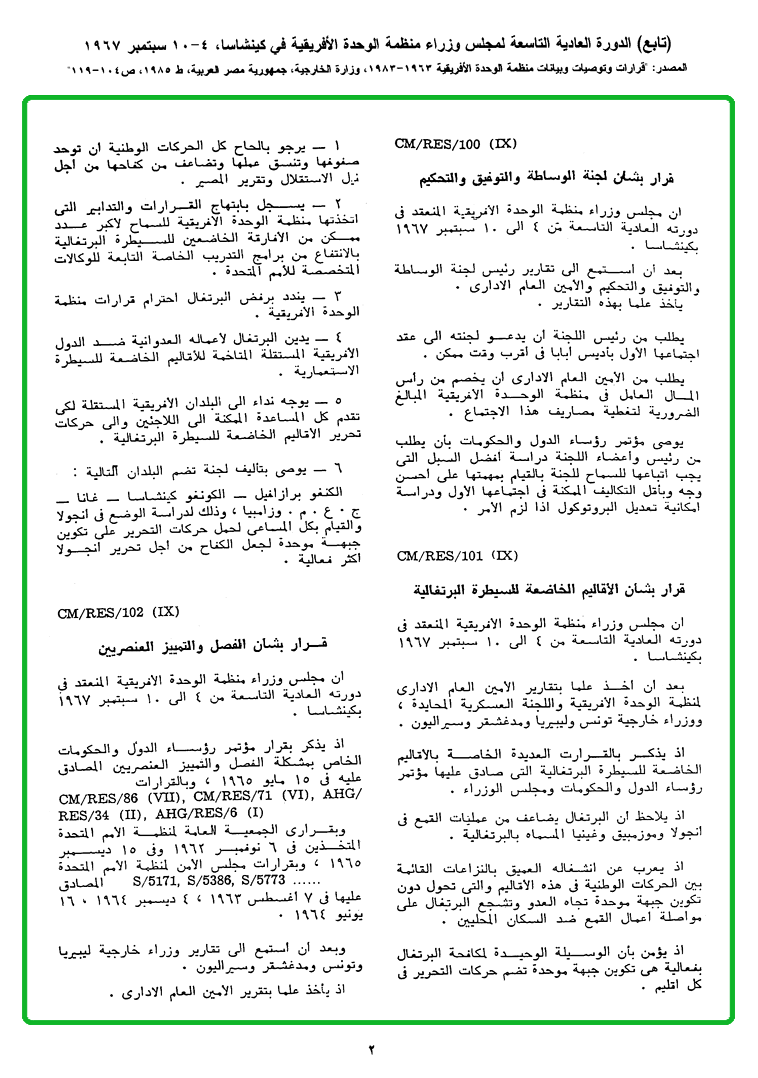 (تابع) الدورة العادية التاسعة لمجلس وزراء منظمة الوحدة الأفريقية في كينشاسا، ٤-١٠ سبتمبر ١٩٦٧
المصدر: "قرارات وتوصيات وبيانات منظمة الوحدة الأفريقية ١٩٦٣-١٩٨٣، وزارة الخارجية، جمهورية مصر العربية، ط ١٩٨٥، ص١٠٤-١١٩"
CM/RES/100 (IX)
قرار بشأن لجنة الوساطة والتوفيق والتحكيم
ان مجلس وزراء منظمة الوحدة الأفريقية المنعقد فى
دورته العادية التاسعة من ٤ الى ١٠ سبتمبر ١٩٦٧
بكينشاسا .
بعد أن استمع الى تقارير رئيس لجنة الوساطة
والتوفيق والتحكيم والأمين العام الادارى .
يأخذ علما بهذه التقارير .
يطلب من رئيس اللجنة أن يدعو لجنته الى عقد
اجتماعها الأول بأديس أبابا فى أقرب وقت ممكن .
يطلب من الأمين العام الادارى ان يخصم من رأس
المال العامل فى منظمة الوحدة الأفريقية المبالغ
الضرورية لتغطية مصاريف هذا الاجتماع .
يوصى مؤتمر رؤساء الدول والحكومات بأن يطلب
من رئيس وأعضاء اللجنة دراسة أفضل السبل التى
يجب اتباعها للسماح للجنة بالقيام بمهمتها على احسن
وجه وبأقل التكاليف الممكنة فى اجتماعها الأول ودراسة
امكانية تعديل البروتوكول اذا لزم الأمر .
CM/RES/101 (IX)
قرار بشأن الأقاليم الخاضعة للسيطرة البرتغالية
ان مجلس وزراء منظمة الوحدة الأفريقية المنعقد فى
دورته العادية التاسعة من ٤ الى ١٠ سبتمبر ١٩٦٧
بكينشاسا .
بعد أن أخذ علما بتقارير الأمين العام الادارى
لمنظمة الوحدة الأفريقية واللجنة العسكرية المحايدة ،
ووزراء خارجية تونس وليبيريا ومدغشقر وسيراليون .
اذ يذكر بالقرارت العديدة الخاصة بالأقاليم
الخاضعة للسيطرة البرتغالية التى صادق عليها مؤتمر
رؤساء الدول والحكومات ومجلس الوزراء .
اذ يلاحظ أن البرتغال يضاعف من عمليات القمع فى
انجولا وموزمبيق وغينيا المسماه بالبرتغالية .
اذ يعرب عن انشغاله العميق بالنزاعات القائمة
بين الحركات الوطنية فى هذه الأقاليم والتى تحول دون
تكوين جبهة موحدة تجاه العدو وتشجع البرتغال على
مواصلة أعمال القمع ضد السكان المحليين .
اذ يؤمن بأن الوسيلة الوحيدة لمكافحة البرتغال
بفعالية هى تكوين جبهة موحدة تضم حركات التحرير فى
كل اقليم .
١ — يرجو بالحاح كل الحركات الوطنية ان توحد
صفوفها وتنسق عملها وتضاعف من كفاحها من أجل
نيل الاستقلال وتقرير المصير .
٢ — يسجل بابتهاج القرارات والتدابير التى
اتخذتها منظمة الوحدة الأفريقية للسماح لأكبر عدد
ممكن من الأفارقة الخاضعين للسيطرة البرتغالية
بالانتفاع من برامج التدريب الخاصة التابعة للوكالات
المتخصصة للأمم المتحدة .
٣ — يندد برفض البرتغال احترام قرارات منظمة
الوحدة الأفريقية .
٤ — يدين البرتغال لأعماله العدوانية ضد الدول
الأفريقية المستقلة المتاخمة للأقاليم الخاضعة للسيطرة
الاستعمارية .
٥ — يوجه نداء الى البلدان الأفريقية المستقلة لكى
تقدم كل المساعدة الممكنة الى اللاجئين والى حركات
تحرير الأقاليم الخاضعة للسيطرة البرتغالية .
٦ — يوصى بتأليف لجنة تضم البلدان التالية :
الكنغو برازافيل — الكونغو كينشاسا — غانا —
ج ٠ ع ٠ م ٠ وزامبيا ، وذلك لدراسة الوضع فى أنجولا
والقيام بكل المساعى لحمل حركات التحرير على تكوين
جبهة موحدة لجعل الكفاح من أجل تحرير أنجولا
أكثر فعالية .
CM/RES/102 (IX)
قرار بشأن الفصل والتمييز العنصريين
ان مجلس وزراء منظمة الوحدة الأفريقية المنعقد فى
دورته العادية التاسعة من ٤ الى ١٠ سبتمبر ١٩٦٧
بكينشاسا .
اذ يذكر بقرار مؤتمر رؤساء الدول والحكومات
الخاص بمشكلة الفصل والتمييز العنصريين المصادق
عليه فى ١٥ مايو ١٩٦٥ ، وبالقرارات
CM/RES/86 (VII), CM/RES/71 (VI), AHG/
RES/34 (II), AHG/RES/6 (I)
وبقرارى الجمعية العامة لمنظمة الأمم المتحدة
المتخذين فى ٦ نوفمبر ١٩٦٢ وفى ١٥ ديسمبر
١٩٦٥ ، وبقرارات مجلس الأمن لمنظمة الأمم المتحدة
S/5171, S/5386, S/5773 ...... المصادق
عليها فى ٧ أغسطس ١٩٦٣ ، ٤ ديسمبر ١٩٦٤ ٠ ١٦
يونيو ١٩٦٤ ٠
وبعد أن استمع الى تقارير وزراء خارجية ليبيريا
وتونس ومدغشقر وسيراليون .
اذ يأخذ علما بتقرير الأمين العام الادارى .
٢